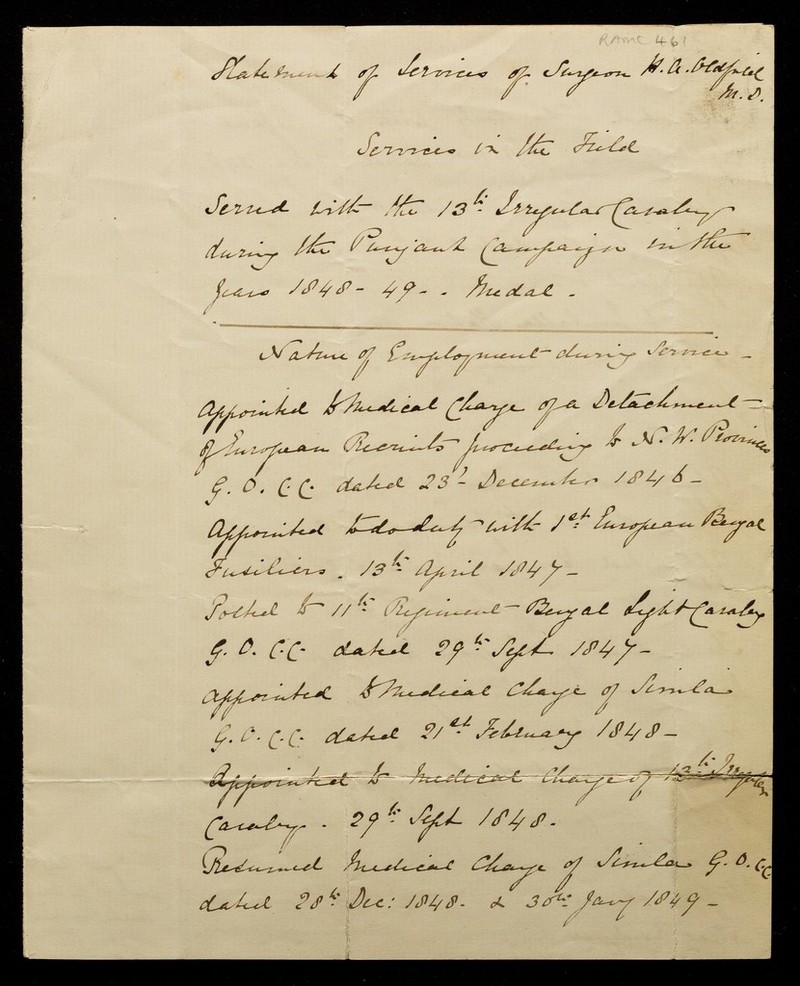 RAMC 461
Statement of Services of Surgeon H. A. Oldfield
M. D.
Services in the Field
Served with the 13th Irregular Cavalry
during the Punjaub Campaign in the
years 1848 - 49 - . Medal .
Nature of Employment during Service -
Appointed to Medical Charge of a Detachment
of European Recruits proceeding to N. W. Provinces
G. O. C. C. dated 23d December 1846 -
Appointed to do duty with 1st European Bengal
Fusiliers . 13th April 1847 -
Posted to 11th Regiment Bengal Light Cavalry
G. O. C. C. dated 29th Sept 1847 -
Appointed to Medical Charge of Simla
G. O. C. C. dated 21st February 1848 -
Appointed to Medical Charge of 13th Irregular
Cavalry . 29th Sept 1848 .
Resumed Medical Charge of Simla G. O. C. C.
dated 28th Dec: 1848 . & 30th Jany 1849 -